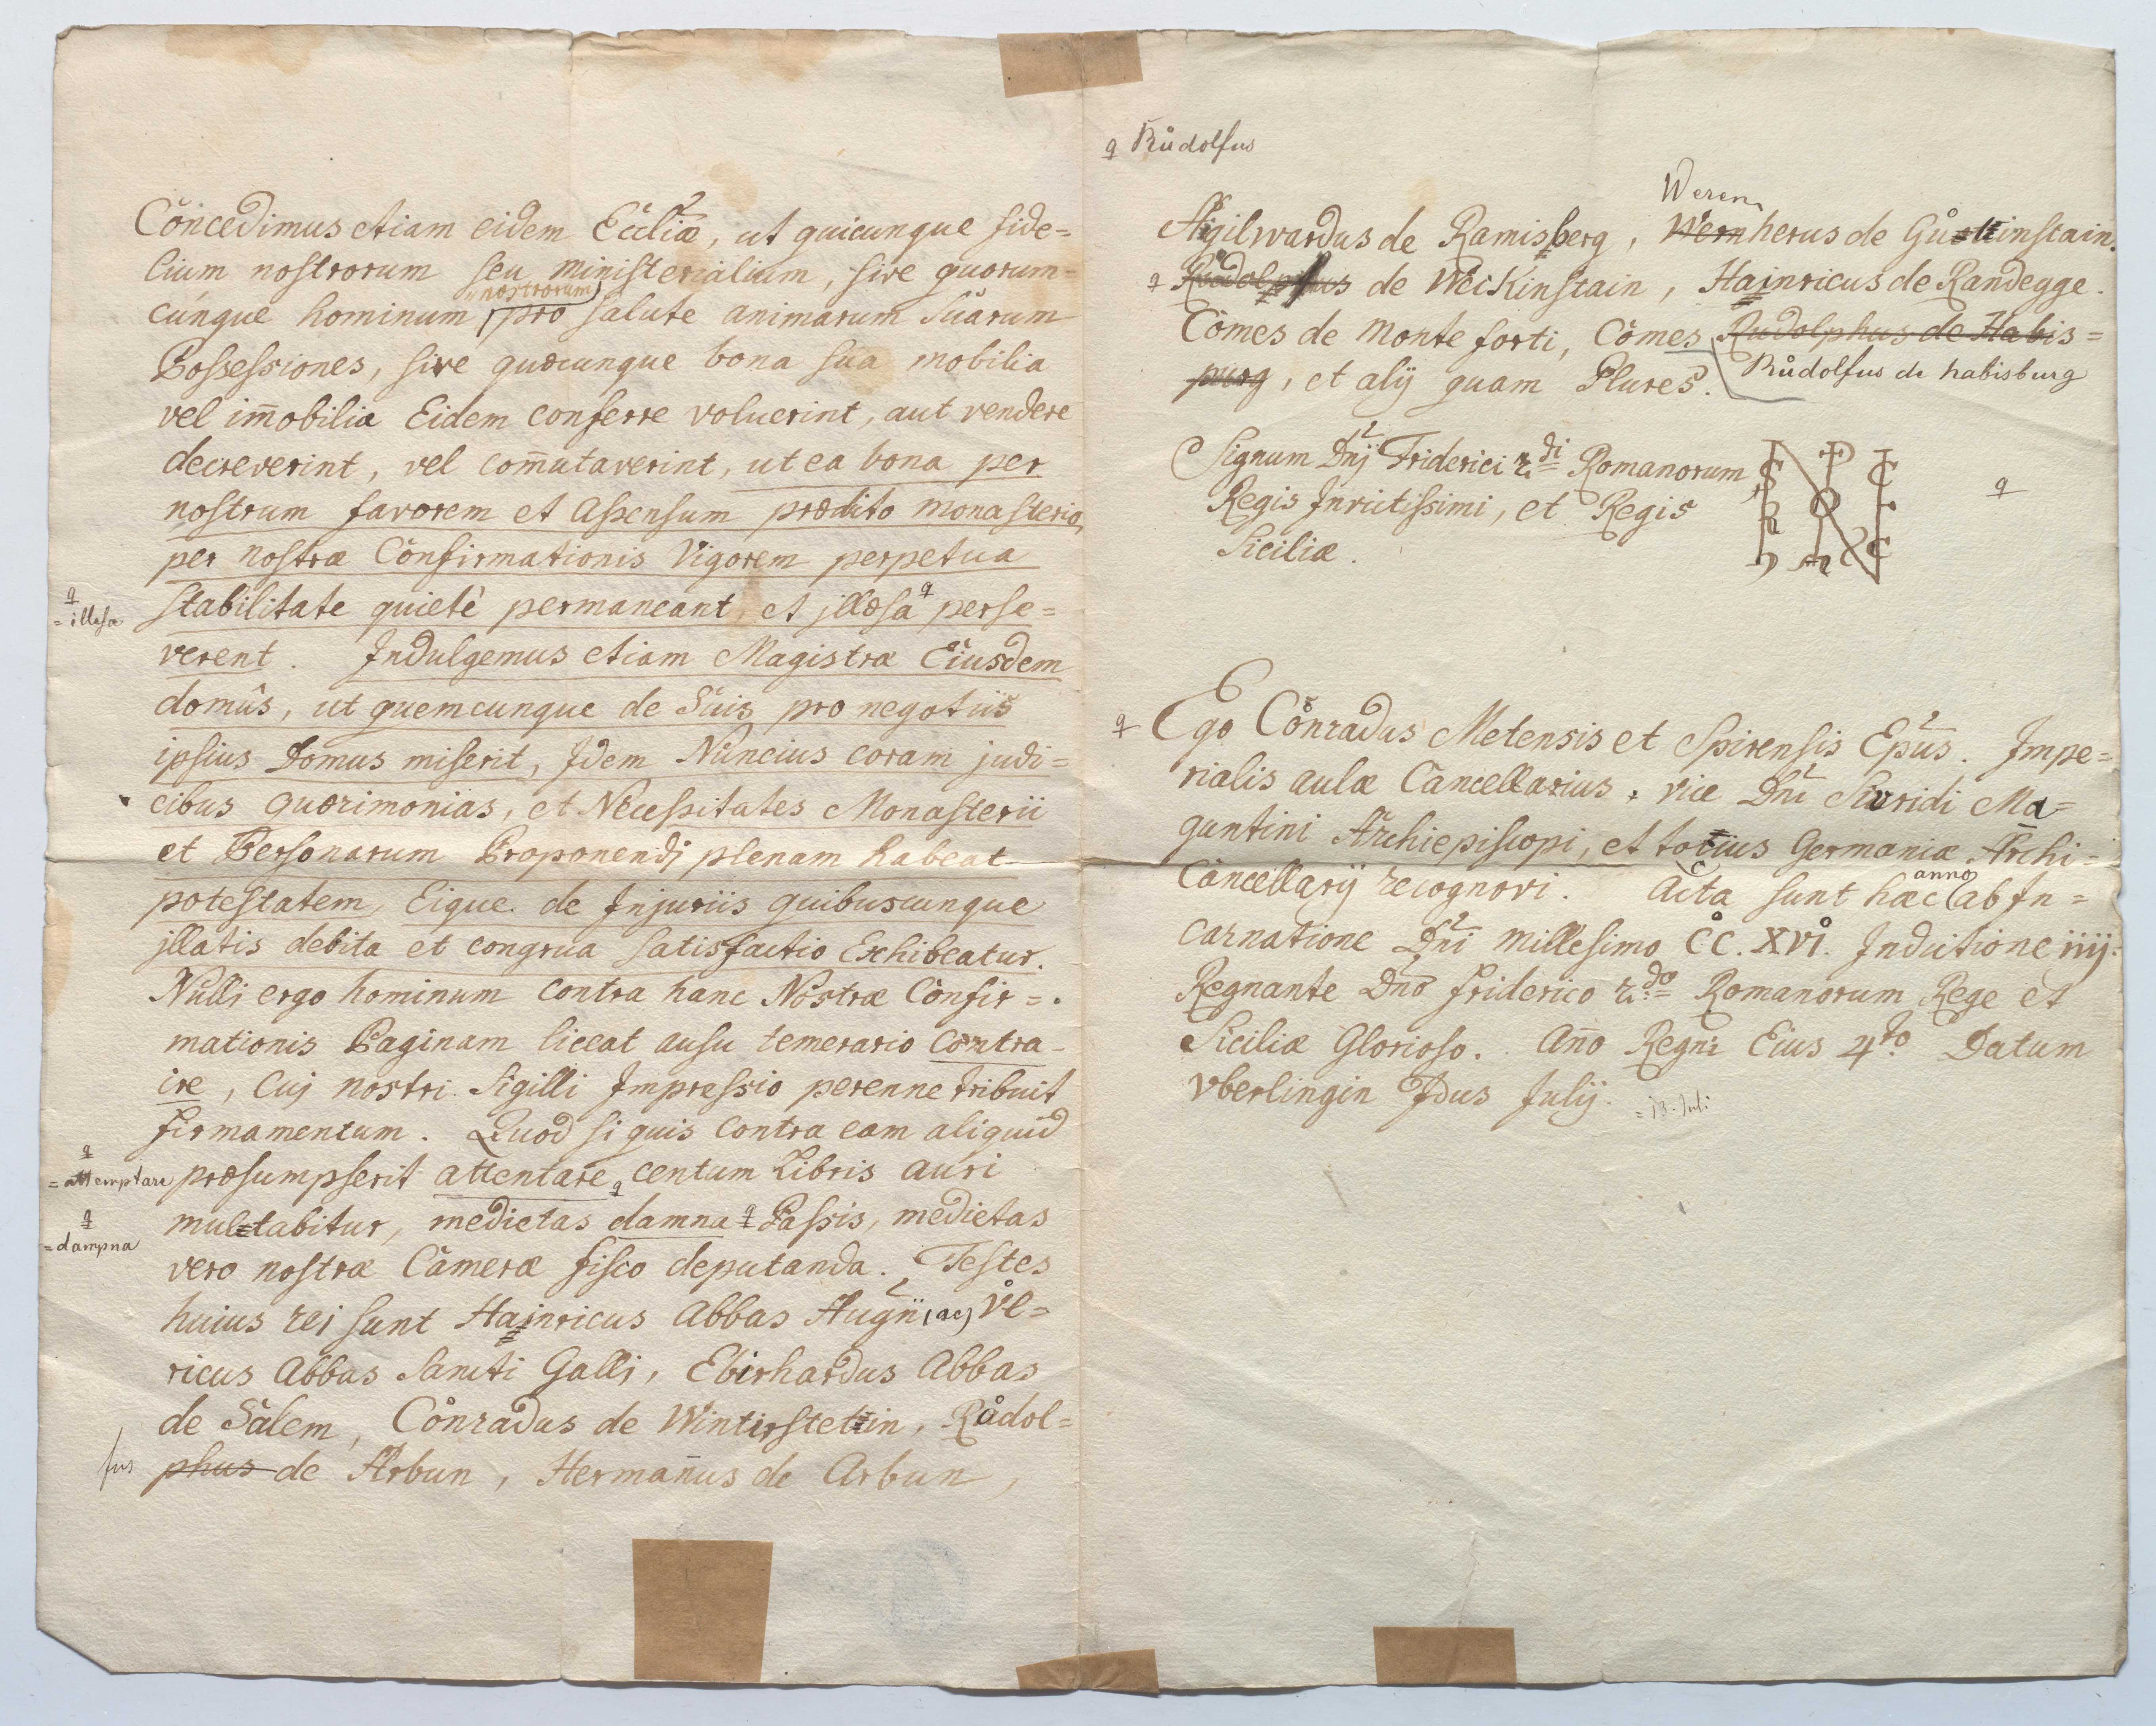 Concedimus etiam eidem Eccliæ, ut quicunque fide=
lium nostrorum seu ministerialium, sive quorum=
"nostrorum"
cunque hominum pro salute animarum suarum
Possessiones, sive quæcunque bona sua mobilia
vel im̄obilia Eidem conferre voluerint, aut vendere
decreverint, vel com̄utaverint, ut ea bona per
nostrum favorem et Assensum prædito monasterio,
per nostræ Confirmationis Vigorem perpetua
=illesa stabilitate quietè permaneant, et jllæsa perse=
verent. Indulgemus etiam Magistræ Eiusdem
domûs, ut quemcunque de Suis pro negotiis
ipsius Domus miserit, Idem Nuncius coram judi=
cibus quærimonias, et Necessitates Monasterii
et Personarum Proponendj plenam habeat
potestatem, Eique de Injuriis quibuscunque
jllatis debita et congrua satisfactio Exhibeatur.
Nulli ergo hominum contra hanc Nostræ Confir=
mationis Paginam liceat ausu temerario contra=
ire, Cuj nostri Sigilli Impressio perenne tribuit
firmamentum. Quod si quis contra eam aliquid
=attemptare præsumpserit attentare centum Libris auri
muletabitur, medietas damna Passis, medietas
=dampna
vero nostræ Cameræ fisco deputanda. Testes
huius rei sunt Hainricus Abbas Augn̄ (ac) Vͦl=
ricus Abbas Sancti Galli, Ebirhardus Abbas
de Salem, Cònradus de Wintirstettin, Růdol=
fus phus de Arbun, Hermañus de Arbun,
q Růdolfus
Weren
Aigilwardus de Ramisberg, Wernherus de Gůttinstain.
q Ruodolphus de Weikinstain, Hainricus de Randegge.
Comes de Monte forti, Comes Rudolphus de Habis=
purg, et alÿ quam Plures. Růdolfus de habisburg
Signum Dnj Friderici 2di Romanorum
Regis Invictissimi, et Regis
Siciliæ.
q
q Ego Cònradus Metensis et Spirensis Epus. Impe=
rialis aulæ Cancellarius, vice Dni Sivridi Ma=
guntini Archiepiscopi, et totius Germaniæ Archi=
Cancellarÿ recognovi. Acta sunt hæc anno ab In=
carnatione Dni millesimo CC. XVI. Indictione iiij.
Regnante Dno friderico 2do Romanorum Rege et
Siciliæ Glorioso. Año Regni Eius 4to Datum
Vberlingin Idus Julÿ. =13. Juli